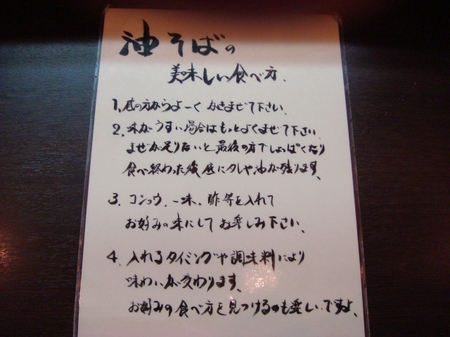 油そばの
美味しい食べ方
1. 底の方からよーくかきまぜて下さい.
2. 味がうすい場合はもっとよくまぜて下さい.
まぜが足りないと最後の方でしょっぱくなり
食べ終わった後底にタレや油が残ります.
3. コショウ、一味、酢等を入れて
お好みの味にしてお楽しみ下さい.
4. 入れるタイミングや調味料により
味わいが変わります.
お好みの食べ方を見つけるのも楽しいですよ.